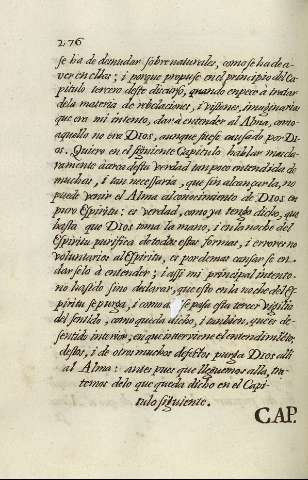 276
se ha de desnudar sobre naturales, como se ha de a
ver en ellas; i porque propuse en el principio del Ca
pitulo tercero deste discurso, quando enpecè à tratar
de la materia de rebelaciones, i visiones, imaginaria
que era mi intento, dar à entender al Alma, como
aquello no era Dios, aunque fuese causado por Di-
os. Quiero en el siguiente Capitulo hablar mas cla-
ramente àcerca desta verdad tan poco entendida de
muchos, i tan necesaria, que sin alcançarla, no
puede venir el Alma al conocimiento de DIOS en
puro Espiritu: es verdad, como ya tengo dicho, que
hasta que DIOS toma la mano, i en la noche del
Espiritu purifica de todas estas formas, i errores no
voluntarios al Espiritu, es por demas cansarse en
darselo à entender; i assi mi principal intento
no ha sido sino declarar, que esto en la noche del es-
piritu se purga, i como se pasa esta tercer vigilia
del sentido, como queda dicho, i tanbien, que es de
sentido interior, en que interviene el entendimiento,
destos, i de otros muchos defectos purga DIOS alli
al Alma: antes pues que lleguemos allà, tra
temos de lo que queda dicho en el Capi
tulo siguiente.
CAP.